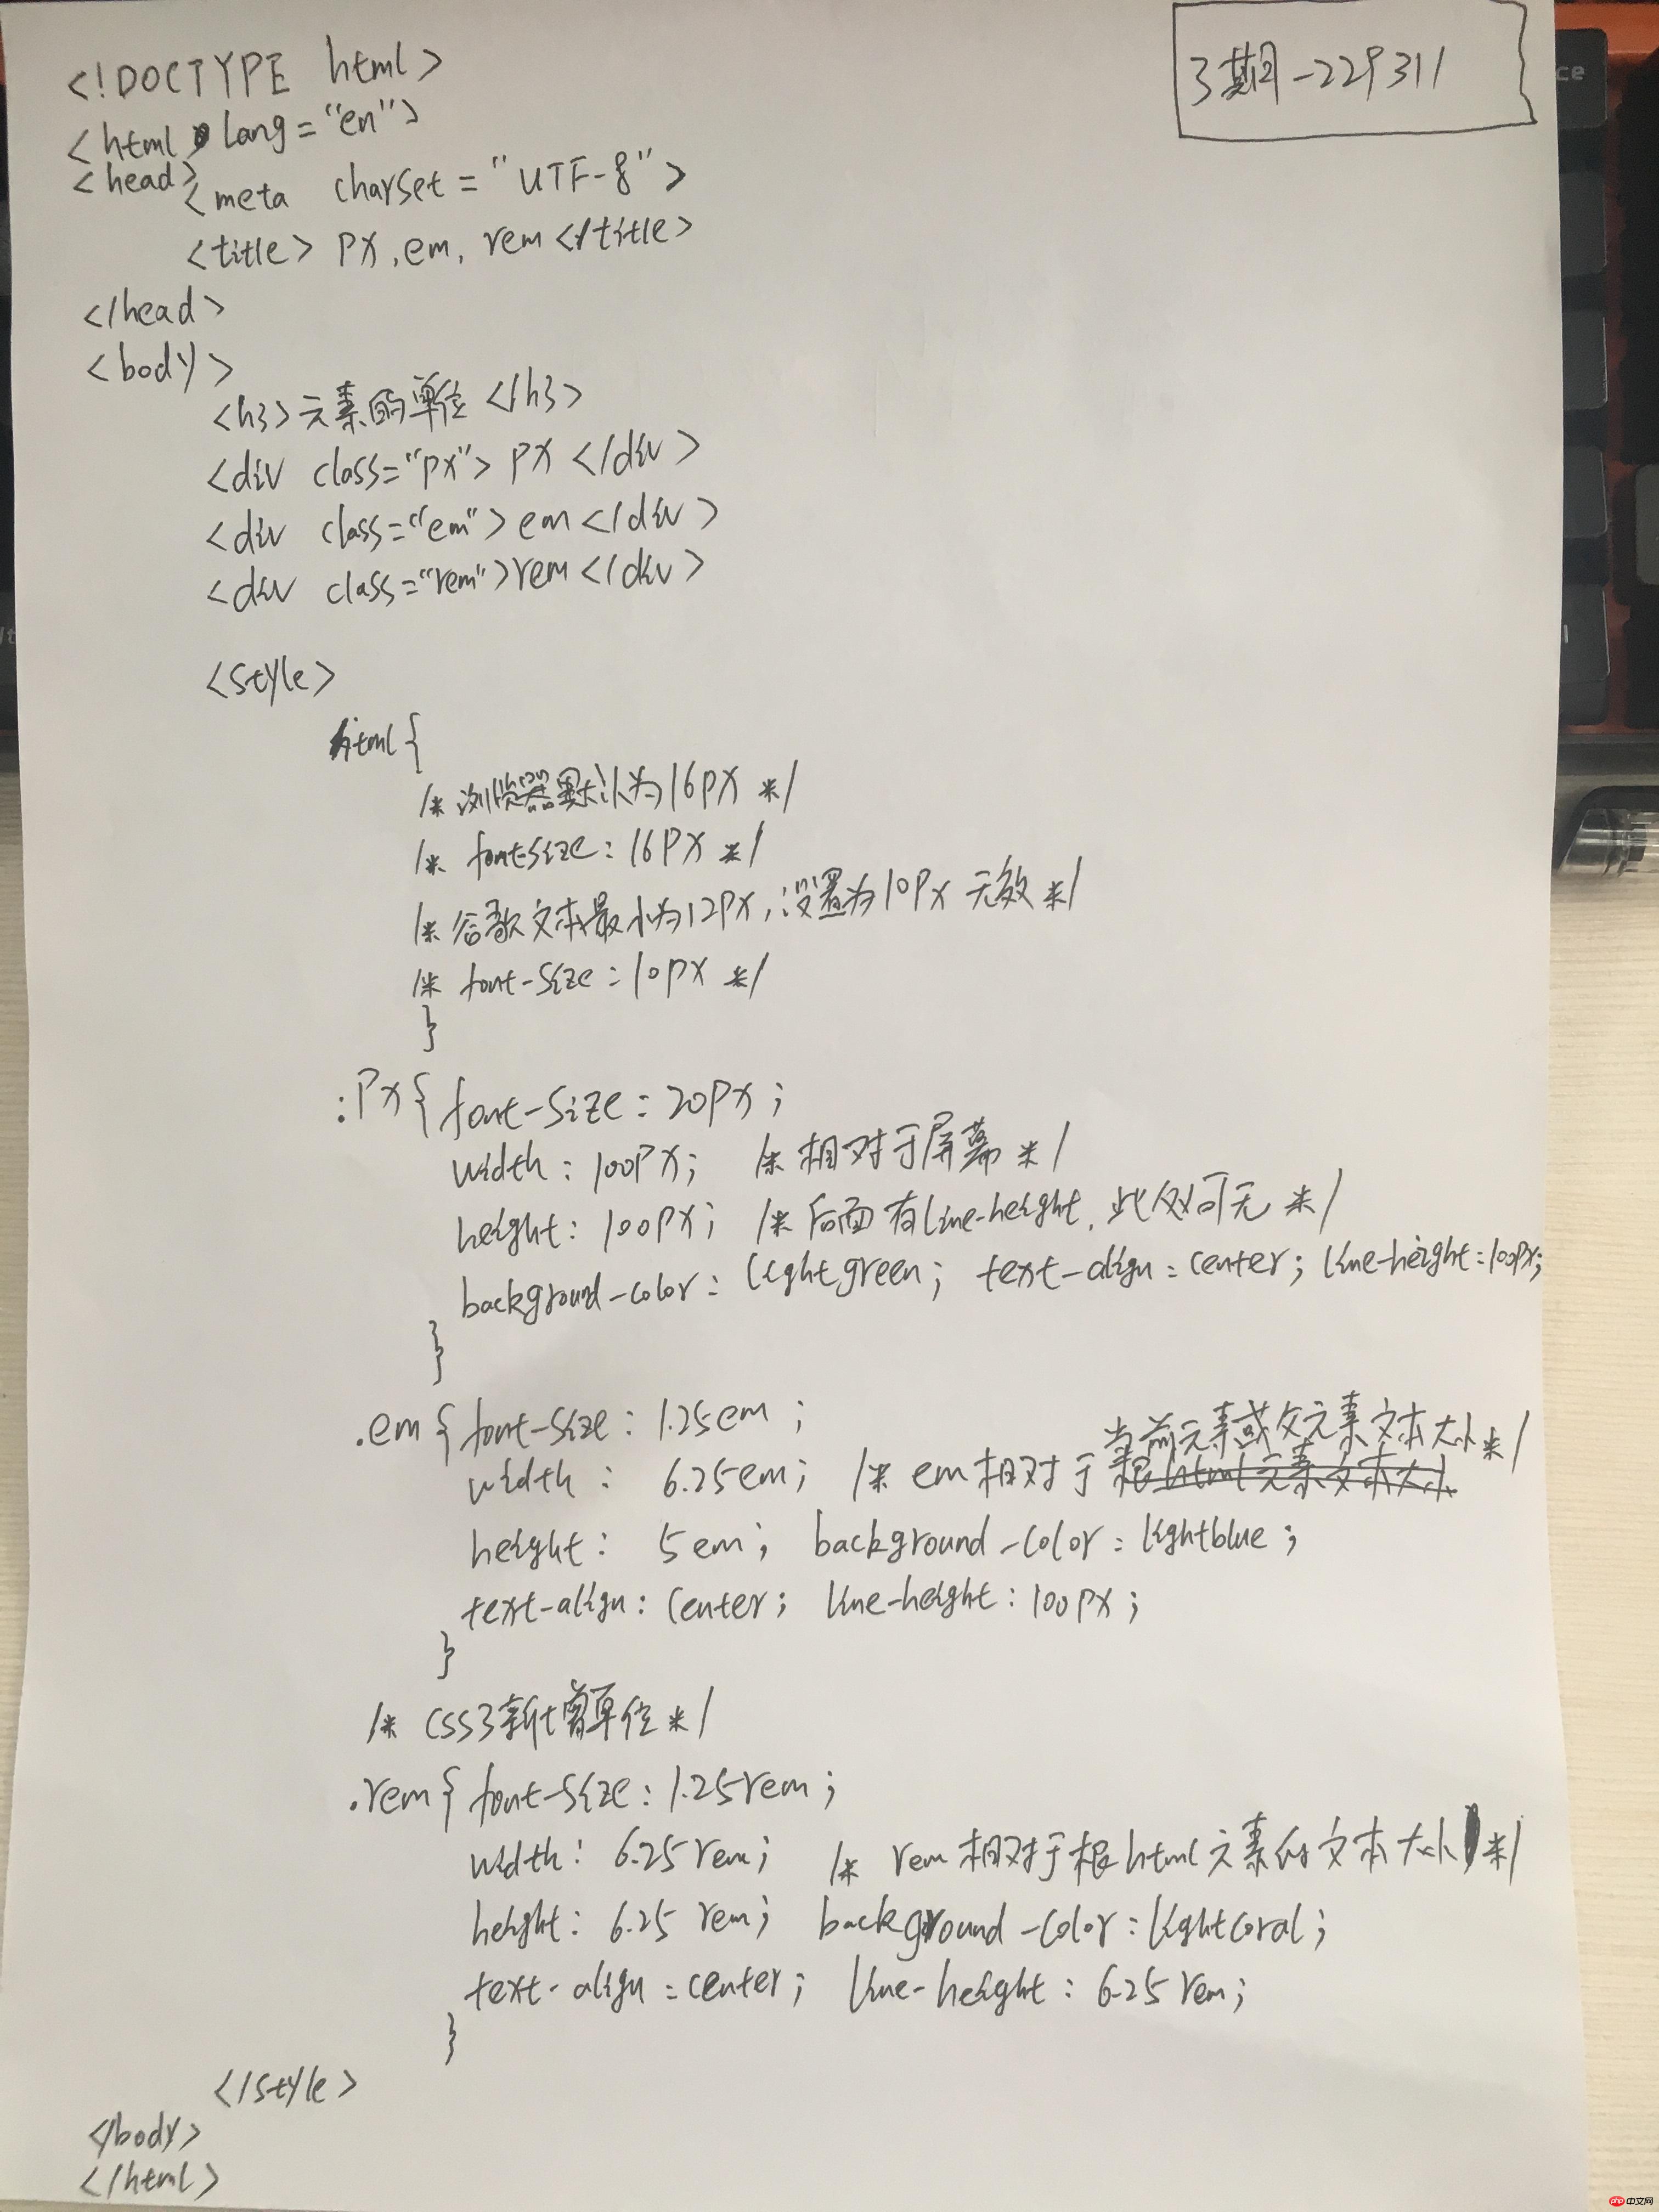 3期-229311
<!DOCTYPE html>
<html lang="en">
<head>
<meta charset="UTF-8">
<title>px,em,rem</title>
</head>
<body>
<h3>元素的单位</h3>
<div class="px">px</div>
<div class="em">em</div>
<div class="rem">rem</div>
<style>
html{
/*浏览器默认为16px*/
/* font-size:16px */
/*谷歌文本最小为12px,设置为10px无效*/
/* font-size:10px */
}
.px{font-size:20px;
width:100px; /*相对于屏幕*/
height:100px; /*后面有line-height,此处可无*/
background-color:lightgreen; text-align:center; line-height:100px;
}
.em{font-size:1.25em;
当前元素或父元素文本大小*/
width: 6.25em; /* em相对于根html元素文本大小
height: 5em; background-color:lightblue;
text-align:center; line-height:100px;
}
/* CSS3新增单位*/
.rem{font-size:1.25rem;
width:6.25rem; /* rem相对于根html元素的文本大小*/
height:6.25rem; background-color:lightcoral;
text-align:center; line-height:6.25rem;
}
</style>
</body>
</html>
ce
php中文网